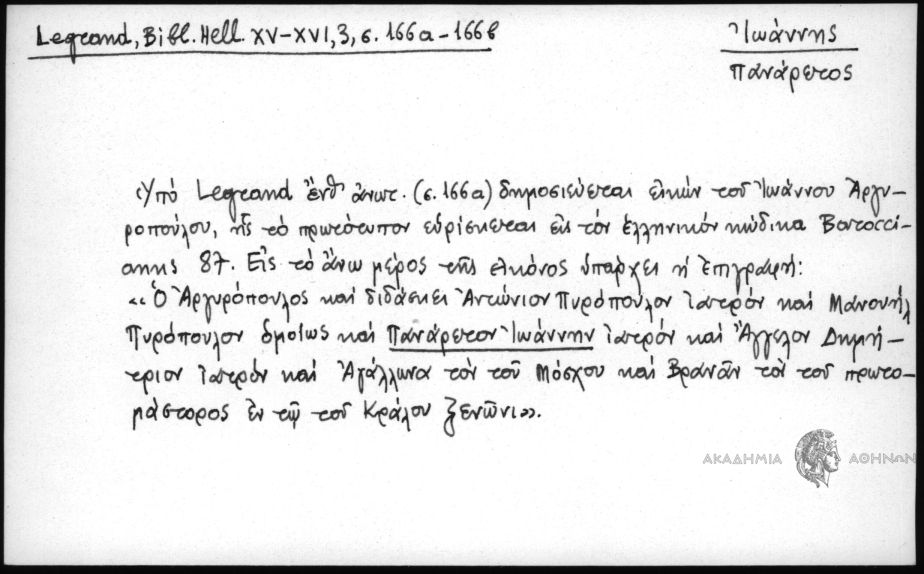 Legrand, Bibl. Hell. XV–XVI, 3, σ. 166a–166b
Ἰωάννης
Πανάρετος
Ὑπὸ Legrand ἔνθ' ἀνωτ. (σ. 166a) δημοσιεύεται εἰκὼν τοῦ Ἰωάννου Ἀργυ-
ροπούλου, ἧς τὸ πρωτότυπον εὑρίσκεται εἰς τὸν ἑλληνικὸν κώδικα Barocci-
anus 87. Εἰς τὸ ἄνω μέρος τῆς εἰκόνος ὑπάρχει ἡ ἐπιγραφή:
«Ὁ Ἀργυρόπουλος καὶ διδάσκει Ἀντώνιον Πυρόπουλον ἰατρὸν καὶ Μανουὴλ
Πυρόπουλον ὁμοίως καὶ Πανάρετον Ἰωάννην ἰατρὸν καὶ Ἄγγελον Δημή-
τριον ἰατρὸν καὶ Ἀγάλλωνα τὸν τοῦ Μόσχου καὶ Βρανᾶν τὸν τοῦ πρωτο-
μάστορος ἐν τῷ τοῦ Κράλου ξενῶνι».
ΑΚΑΔΗΜΙΑ ΑΘΗΝΩΝ